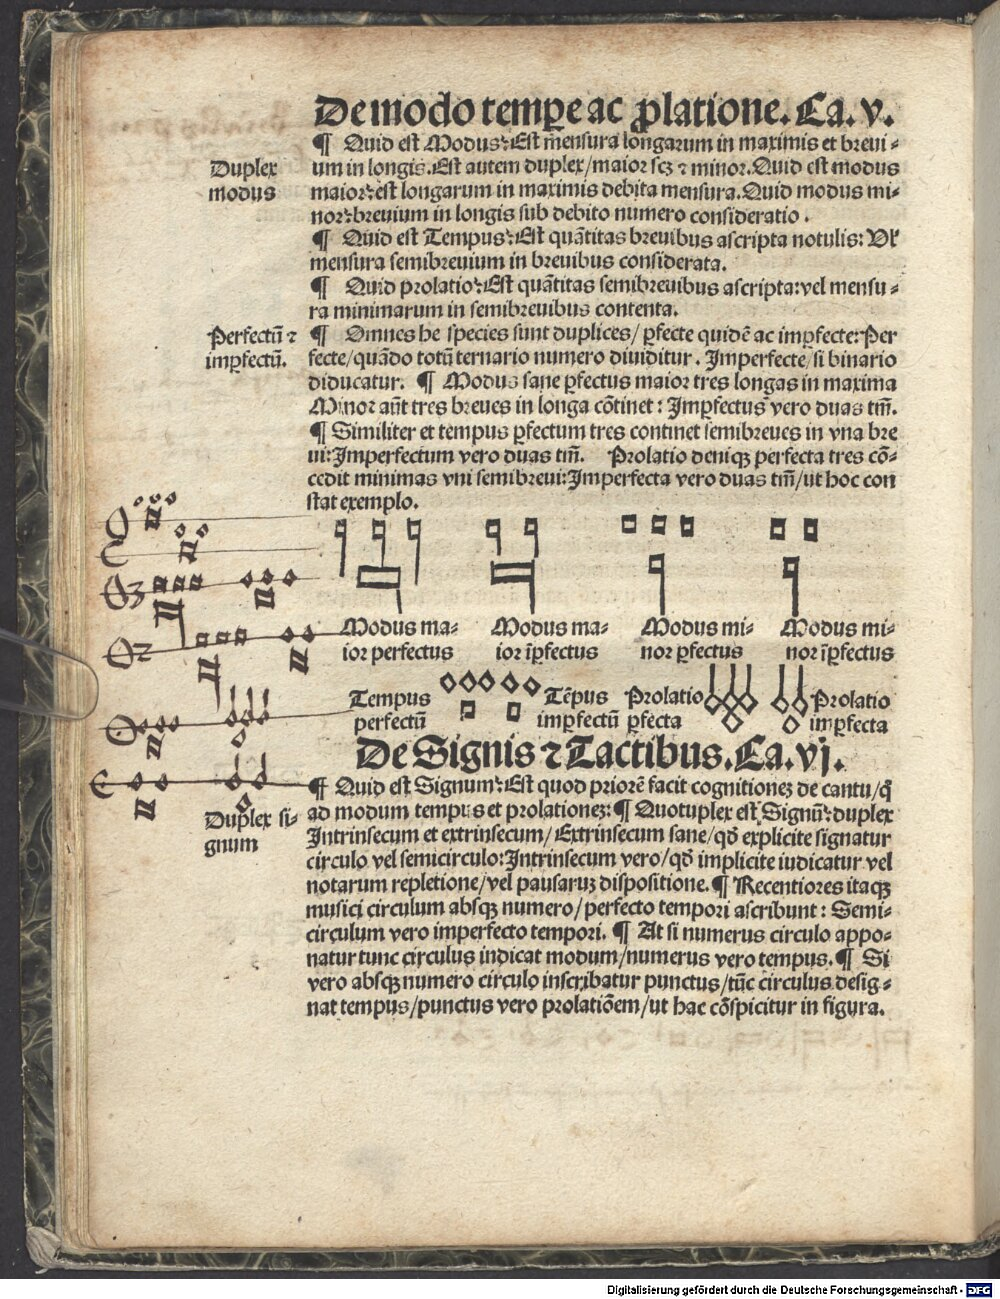 De modo tempe ac ꝓlatione. Ca. v.
¶ Quid est Modus: Est mēsura longarum in maximis et breui-
Duplex modus
um in longis. Est autem duplex/maior scꝫ ⁊ minor. Quid est modus
maior: est longarum in maximis debita mensura. Quid modus mi-
nor: breuium in longis sub debito numero consideratio.
¶ Quid est Tempus: Est quātitas breuibus ascripta notulis: Vl'
mensura semibreuium in breuibus considerata.
¶ Quid prolatio: Est quātitas semibreuibus ascripta: vel mensu-
ra minimarum in semibreuibus contenta.
Perfectū ⁊
imꝑfectū.
¶ Omnes he species sunt duplices/ ꝑfecte quidē ac imꝑfecte: Per
fecte/quādo totū ternario numero diuiditur. Imperfecte/si binario
diducatur. ¶ Modus sane ꝑfectus maior tres longas in maxima
Minor aūt tres breues in longa cōtinet: Imꝑfectus vero duas tm̄.
¶ Similiter et tempus ꝑfectum tres continet semibreues in vna bre
ui: Imperfectum vero duas tm̄. Prolatio deniqꝫ perfecta tres cō-
cedit minimas vni semibreui: Imperfecta vero duas tm̄/ut hoc con
stat exemplo.
Modus ma-
ior perfectus
Modus ma-
ior īꝑfectus
Modus mi-
nor ꝑfectus
Modus mi-
nor īꝑfectus
Tempus
perfectū
Tēpus
imꝑfectū
Prolatio
ꝑfecta
Prolatio
imꝑfecta
De Signis ⁊ Tactibus. Ca. vj.
¶ Quid est Signum: Est quod priorē facit cognitionez de cantu/q̄
Duplex si-
gnum
ad modum tempus et prolationez: ¶ Quotuplex est Signū: duplex
Intrinsecum et extrinsecum/ Extrinsecum sane/qd̄ explicite signatur
circulo vel semicirculo: Intrinsecum vero/qd̄ implicite iudicatur vel
notarum repletione/vel pausaruꝫ dispositione. ¶ Recentiores itaqꝫ
musici circulum absqꝫ numero/perfecto tempori ascribunt: Semi-
circulum vero imperfecto tempori. ¶ At si numerus circulo appo-
natur tunc circulus indicat modum/numerus vero tempus. ¶ Si
vero absqꝫ numero circulo inscribatur punctus/tūc circulus desig-
nat tempus/punctus vero prolatiōem/ut hac cōspicitur in figura.
Digitalisierung gefördert durch die Deutsche Forschungsgemeinschaft - DFG